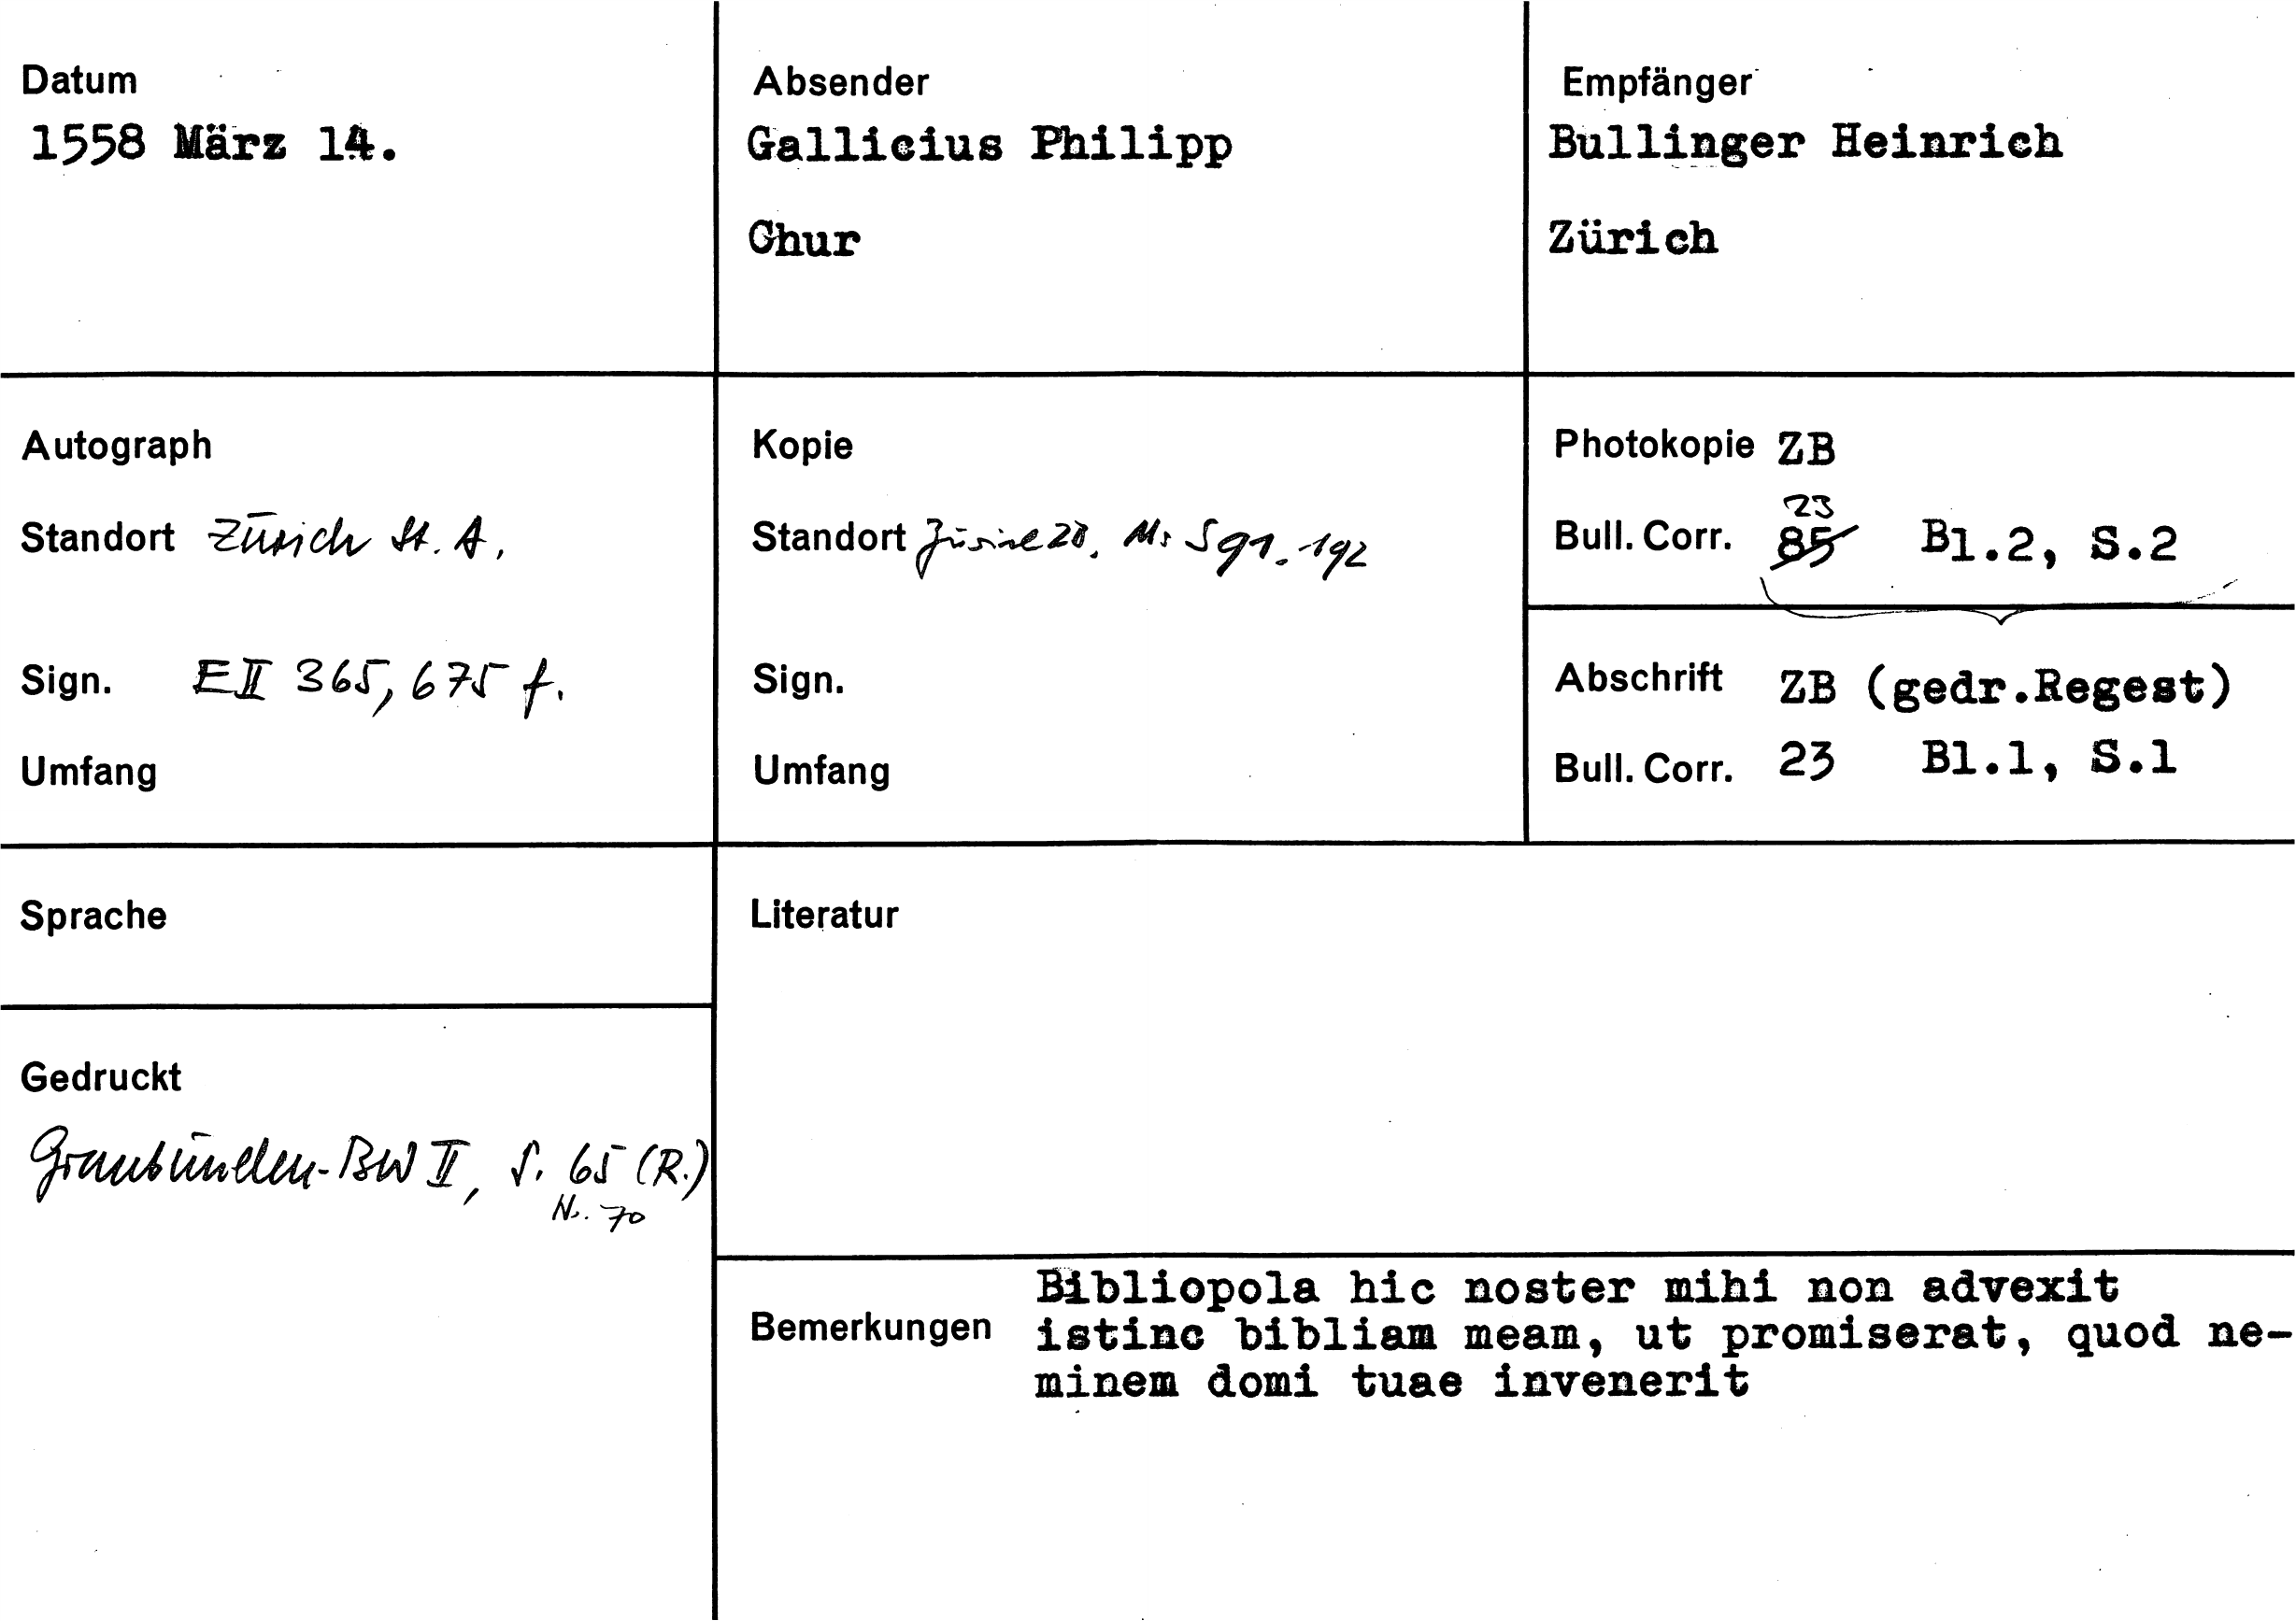 Datum
1558 März 14.
Absender
Gallicius Philipp
Chur
Empfänger
Bullinger Heinrich
Zürich
Autograph
Standort Zürich St. A.
Sign. E II 365, 675 f.
Umfang
Kopie
Standort Zürich ZB, Ms S 91, 192
Sign.
Umfang
Photokopie ZB
23
Bull. Corr. 85 Bl.2, S.2
Abschrift ZB (gedr.Regest)
Bull. Corr. 23 Bl.1, S.1
Sprache
Gedruckt
Graubünden-BW II, S. 65 (R.)
No. 70
Literatur
Bemerkungen
Bibliopola hic noster mihi non advexit
istinc bibliam meam, ut promiserat, quod ne-
minem domi tuae invenerit